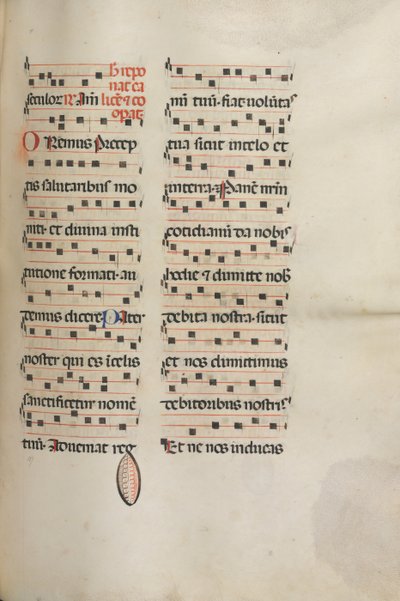 hic repo
nat ca
seculor R Am lice & co
opat.
Oremus Precep
tis salutaribus mo
niti. et divina insti
tutione formati. au
demus dicere Pater
noster qui es i celis
sanctificetur nomē
tuū. Advenīat reg
nū tuū. fiat volūtas
tua sicut in celo et
in terra. Panē nrm
cotidianū da nobis
hodie & dimitte nob
debita nostra. sicut
et nos dimittimus
debitoribus nostris
Et ne nos inducas